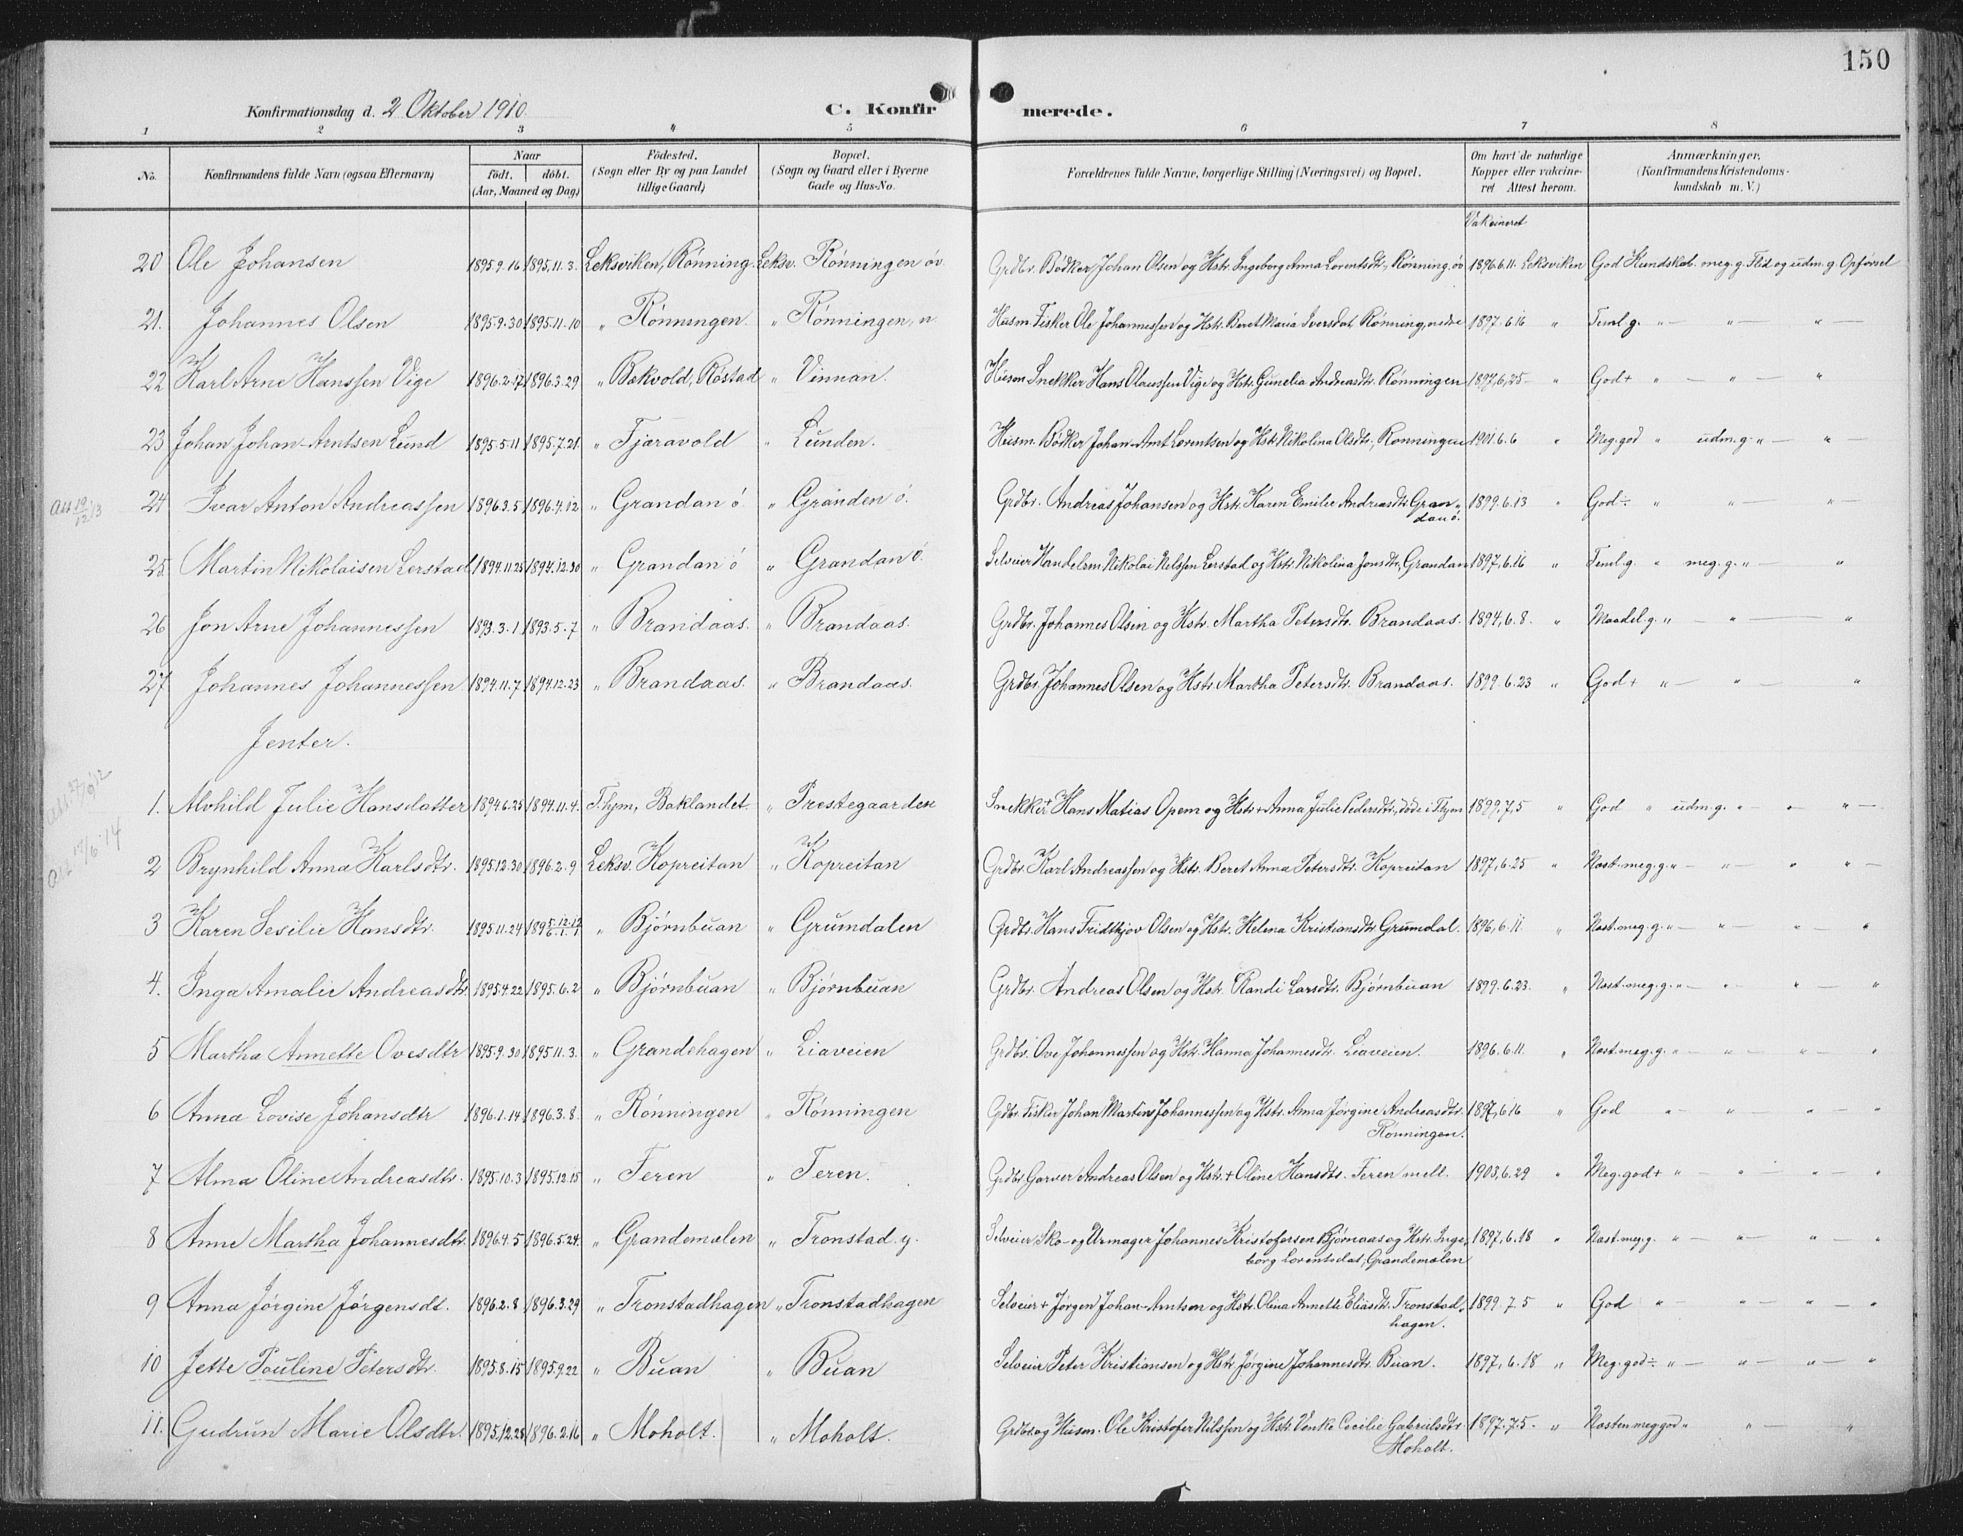 150
Konfirmationsdag d. 2 Oktober 1910.
C. Konfirmerede.
1 2 3 4 5 6 7 8
No. Konfirmandens fulde Navn (ogsaa Efternavn) Naar födt. döbt. (Aar, Maaned og Dag) Födested. (Sogn eller By og paa Landet tillige Gaard) Bopæl. (Sogn og Gaard eller i Byerne Gade og Hus-No. Forældrenes fulde Navne, borgerlige Stilling (Næringsvei) og Bopæl. Om havt de naturlige Kopper eller vakcineret Attest herom. Anmærkninger. (Konfirmandens Kristendomskundskab m. V.)
Vakcineret
20 Ole Johansen 1895.9.16 1895.11.3. Leksviken, Rønning. Leksv. Rønningen öv. Grdbr. Bødker Johan Olsen og Hstr. Ingeborg Anna Lorentsdtr, Rønning, öv 1896.6.11. Leksviken God Kundskab. meg. g. Flid og udm. g. Opførsel
21. Johannes Olsen 1895.9.30 1895.11.10 " Rønningen. " Rønningen, n Husm. Fisker Ole Johannessen og Hstr. Beret Maria Iversdat. Rønning, nedre 1897.6.16 " Teml. g. " — " — " —
22 Karl Arne Hanssen Vige 1896.2.17 1896.3.29 " Bekvold, Røstad " Vinnan. Husm Snekker Hans Olaussen Vige og Hstr. Gunelia Andreasdtr. Rønningen 1897,6,25- " God+ " — " — "
23 Johan Johan-Arntsen Lund 1895.5.11 1895.7.21 " Tjæravold " Lunden. Husm. Bødker Johan-Arnt Lorentsen og Hstr Nikolina Olsdtr, Rønningen 1901.6.6 " Meg. god " udm. g. " — " —
24 Ivar Anton Andreassen 1896.3.5 1896.4.12 " Grandan ö " Granden ö. Grdbr. Andreas Johansen og Hstr. Karen Emilie Andreasdtr. Grandan ö. 1899.6.13 " God÷ " " — " —
25 Martin Nikolaisen Lerstad 1894.11.25 1894.12.30 " Grandan ö " Grandan ö. Selveier Handelsm Nikolai Nilssen Lerstad og Hstr. Nikolina Jonsdtr, Grandan 1897,6.16 " Teml. g. " meg. g. " — "
26 Jon Arne Johannessen 1893.3.1 1893.5.7 " Brandaas. " Brandaas. Grdbr. Johannes Olsen og Hstr. Martha Petersdtr. Brandaas. 1894,6.8. " Maadel. g. " — " — "
27 Johannes Johannessen 1894.11.7 1894.12.23 " Brandaas. " Brandaas. Grdbr Johannes Olsen og Hstr. Martha Petersdtr. Brandaas. 1899.6.23 " God+ " — " "
Jenter.
1. Alvhild Julie Hansdatter 1894.6.25 1894.11.4. Thjm, Baklandet " Prestegaarden Snekker+ Hans Matias Opem og Hstr+ Anna Julie Pedersdtr., døde i Thjm 1899.7.5 " God " udm. g. " — " — " —
2 Brynhild Anna Karlsdtr. 1895.12.30 1896.2.9 Leksv. Kopreitan " Kopreitan Grdbr. Karl Andreassen og Hstr. Beret Anna Petersdtr. Kopreitan 1897,6.25 " Næst. meg. g. " — " — " —
3 Karen Sesilie Hansdtr. 1895.11.24 " Bjørnbuan " Grumdalen Grdbr. Hans Fridthjov Olsen og Hstr. Helena Kristiansdtr Grumdal. 1896,6.11. " Næst. meg. g. " — " — " — "
4. Inga Amalie Andreasdtr. 1895.4.22 1895.6.2 " Bjørnbuan " Bjørnbuan Grdbr. Andreas Olsen og Hstr. Randi Larsdtr. Bjørnbuan 1899.6.23. " Næst. meg. g. " — " — " — "
5 Martha Annette Ovesdtr 1895.9.30 1895.11.3. " Grandehagen " Liaveien Grdbr. Ove Johannessen og Hstr. Hanna Johannesdtr. Liaveien. 1896.6.11. " Næst. meg. g. " — " — " — "
6 Anna Lovise Johansdtr 1896.1.14 1896.3.8. " Rønningen " Rønningen Gdbr. Fisker Johan Martin Johannessen og Hstr. Anna Jørgine Andreasdtr. Rønningen. 1897,6.16 " God " — " — " — "
7 Alma Oline Andreasdtr. 1895.10.3 1895.12.15 " Feren " Feren. Grdbr. Garver Andreas Olsen og Hstr. + Oline Hansdtr. Feren mell. 1903,6.29 " Meg. god+ " — " — " — "
8 Anne Martha Johannesdtr. 1896.4.5 1896.5.24. " Grandemælen " Tronstad y. Selveier Sko- og Urmager Johannes Kristofersen Bjørnaas og Hstr. Ingeborg Lorentsdat, Grandemælen 1897,6.18 " Næst. meg. g. " — " — " — "
9 Anna Jörgine Jörgensdt. 1896.2.8 1896.3.29 " Tronstadhagen " Tronstadhagen Selveier + Jørgen Johan-Arntsen og Hstr. Olina Annette Eliasdtr. Tronstadhagen. 1899.7.5 " God " — " — " — "
10 Jette Pauline Petersdtr. 1895.8.15 1895.9.22 " Buan " Buan Selveier Peter Kristiansen og Hstr. Jørgine Johannesdtr. Buan. 1897,6.18 " Meg. god÷ " — " — " — "
11. Gudrun Marie Olsdtr. 1895.12.28 1896.2.16 " Moholt. " Moholt. Grdbr. og Husm. Ole Kristofer Nilssen og Hstr. Venke Cecilie Gabrielsdtr Moholt. 1897.7.5- " Næsten meg god " " "